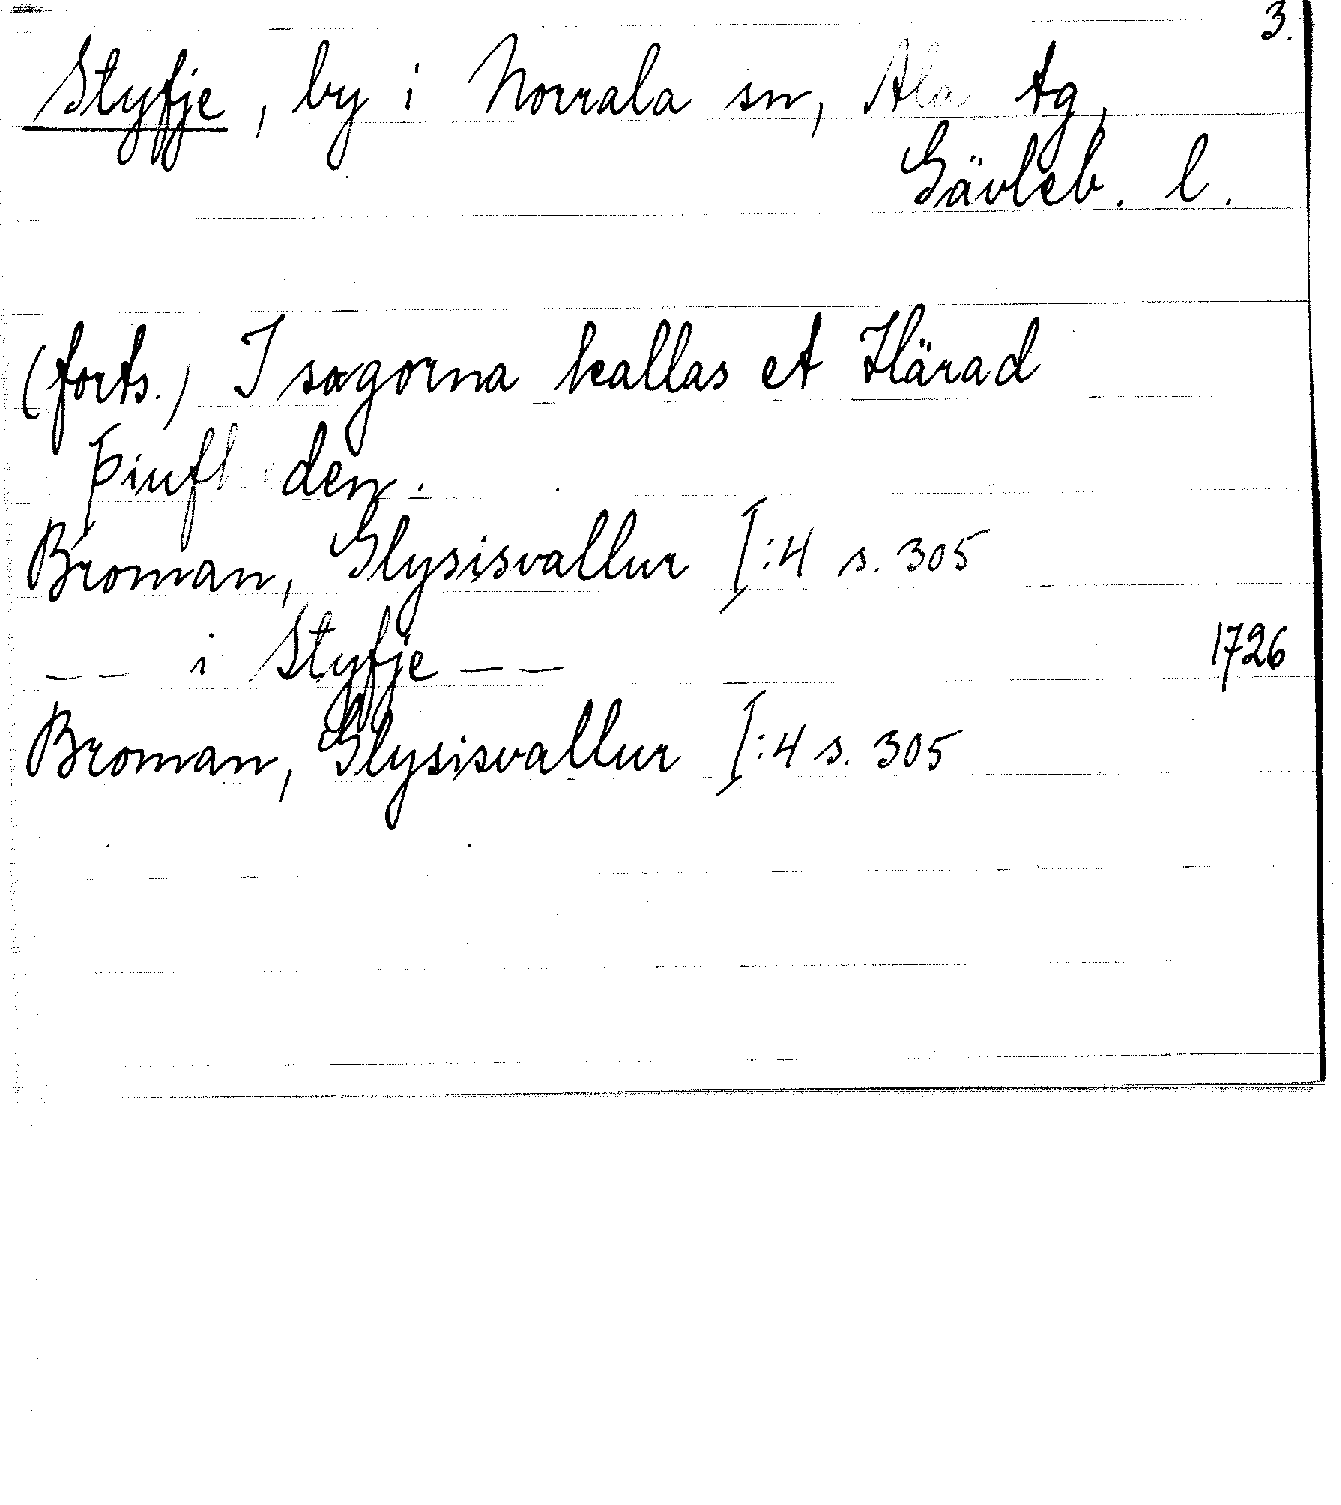 3.
Styfje, by i Norrala sn, Ala tg,
Gävleb. l.
(forts.) I sagorna kallas et Härad
den.
Broman, Glysisvallur I:4 s. 305
-- i Styfje -- 1726
Broman, Glysisvallur I:4 s. 305